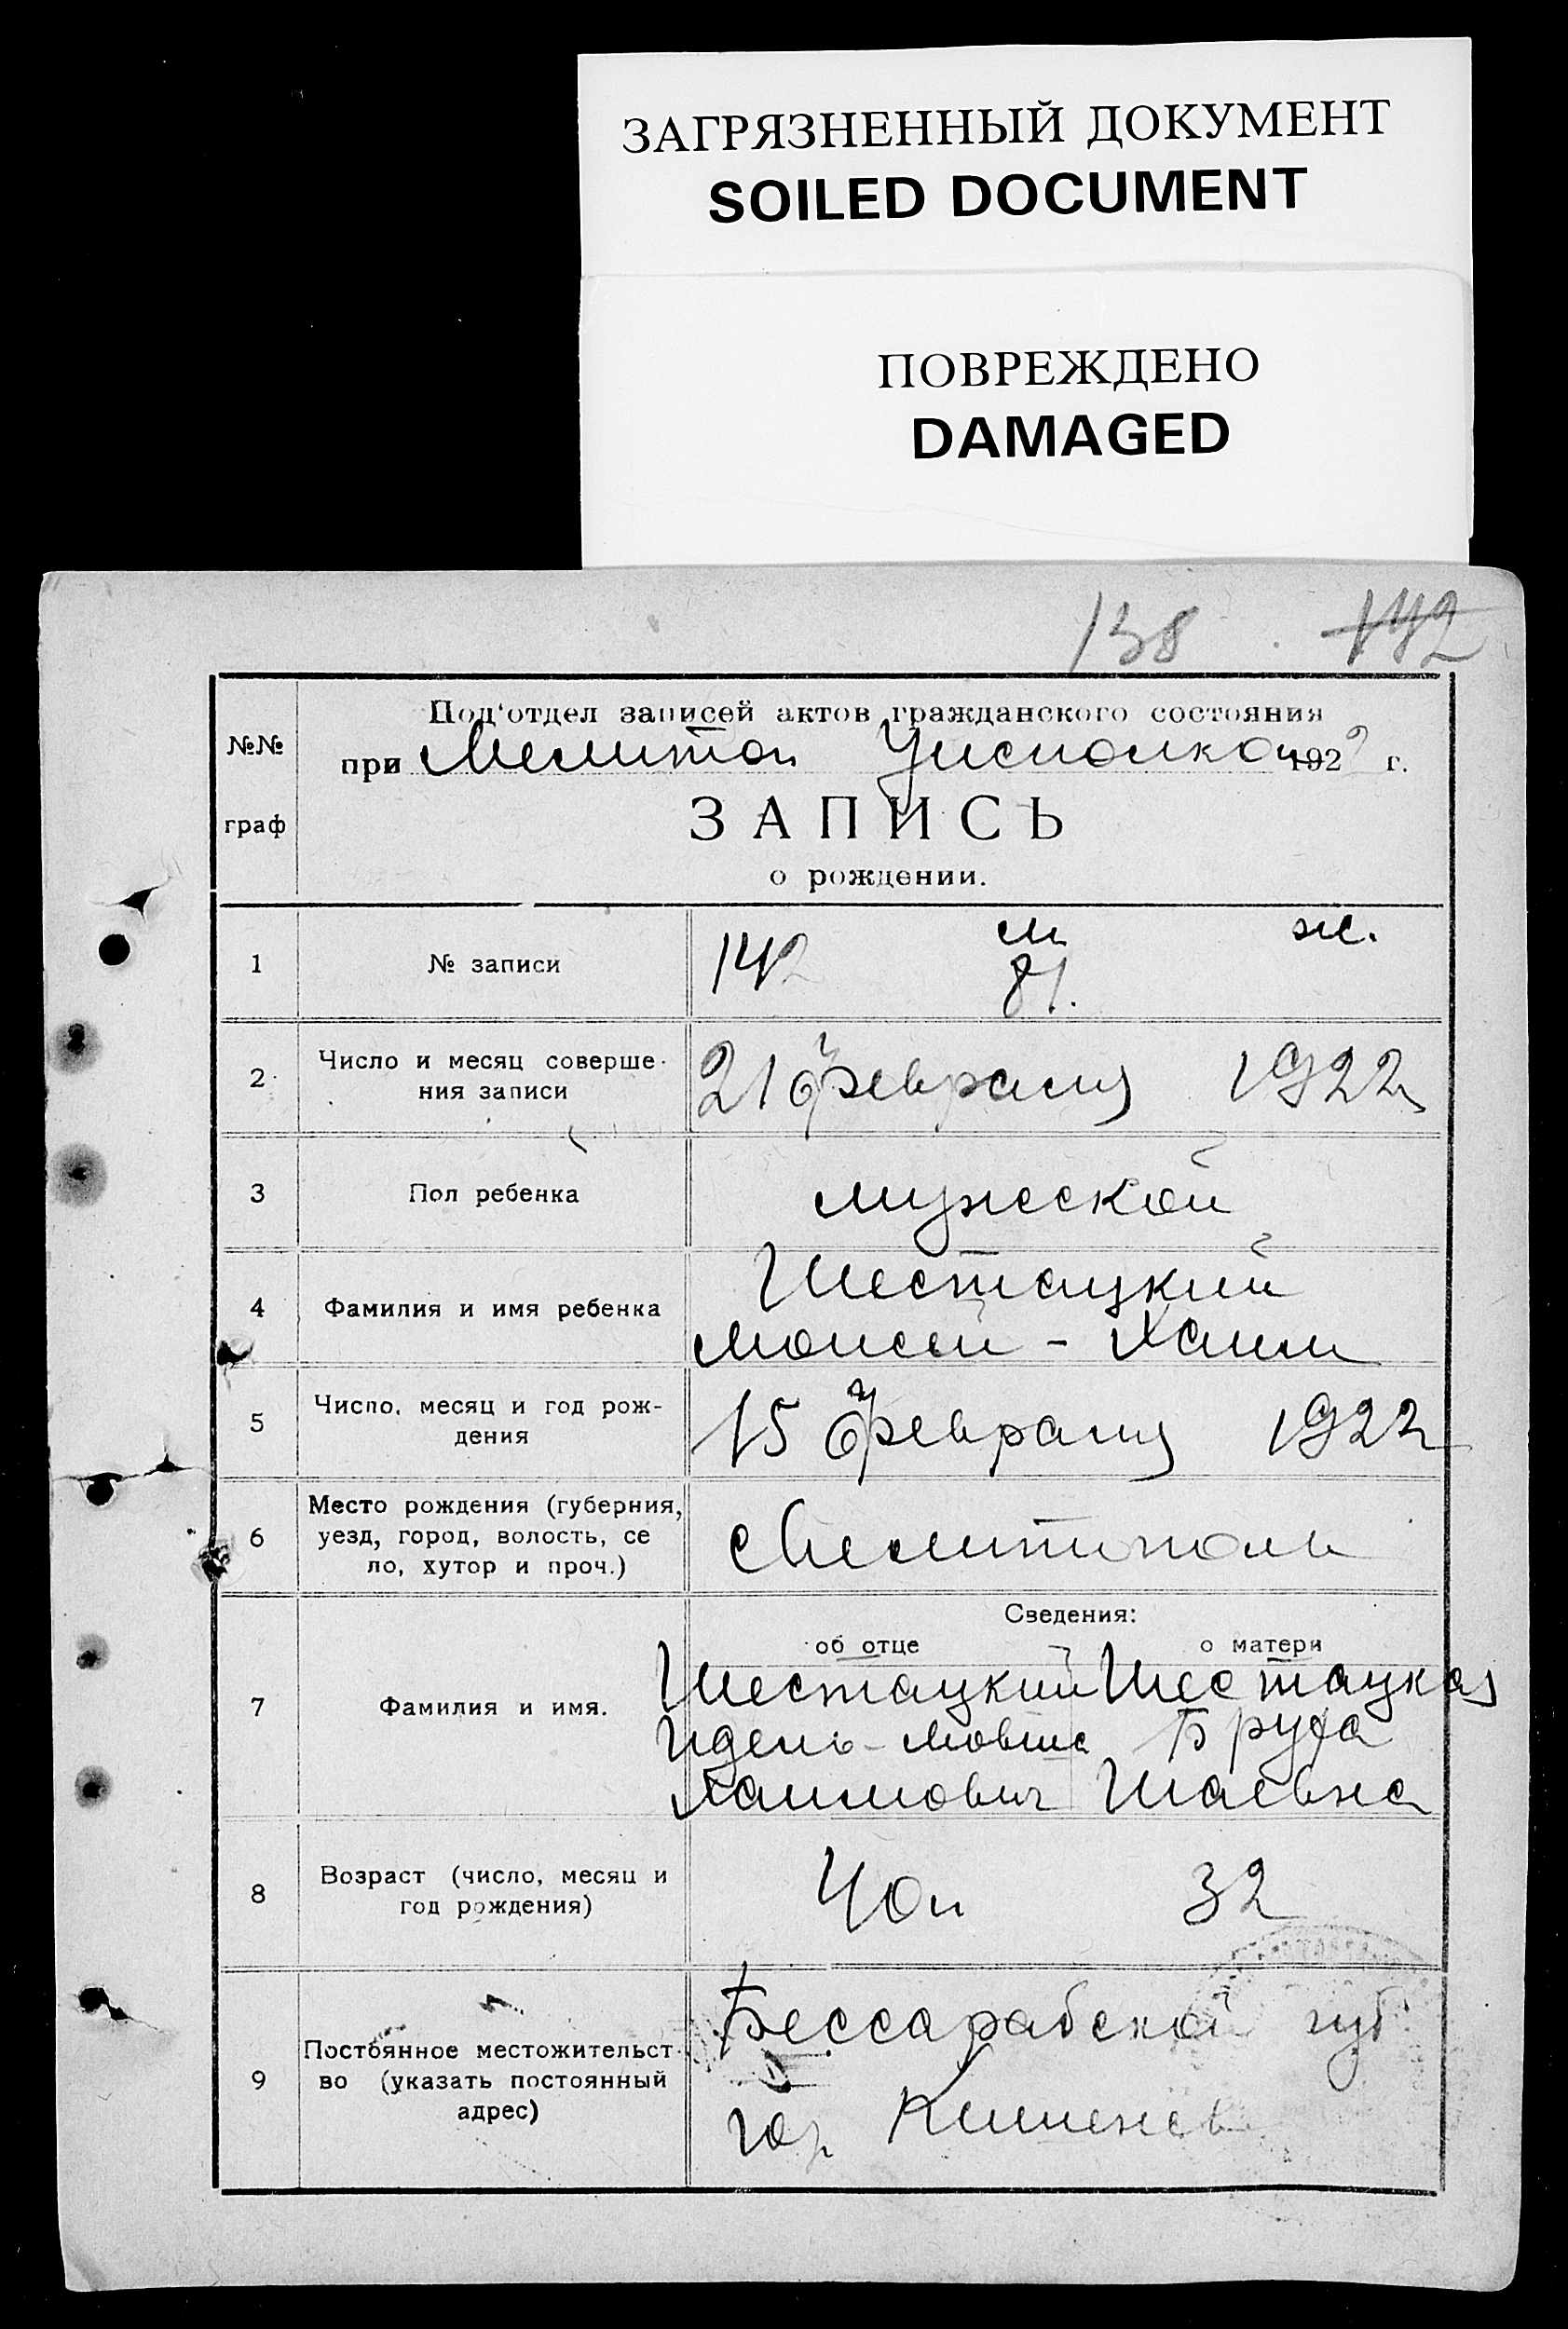 ЗАГРЯЗНЕННЫЙ ДОКУМЕНТ
SOILED DOCUMENT
ПОВРЕЖДЕНО
DAMAGED
138 142
№№ граф
Под'отдел записей актов гражданского состояния
при Мелитоп Уисполком 1922 г.
ЗАПИСЬ
о рождении.
м ж.
1 № записи 142 81.
2 Число и месяц соверше-
ния записи
21 февраля 1922
3 Пол ребенка мужеской
4 Фамилия и имя ребенка
Шестацкий
Моисей - Хаим
5 Число, месяц и год рож-
дения
15 февраля 1922
6 Место рождения (губерния,
уезд, город, волость, се
ло, хутор и проч.)
Мелитополь
Сведения:
об отце о матери
7 Фамилия и имя.
Шестацкий Шестацкая
Идель-Мовша Бруха
Хаимович Шаевна
8 Возраст (число, месяц и
год рождения)
40 32
9 Постоянное местожительст-
во (указать постоянный
адрес)
Бессарабской губ
гор Кишенев